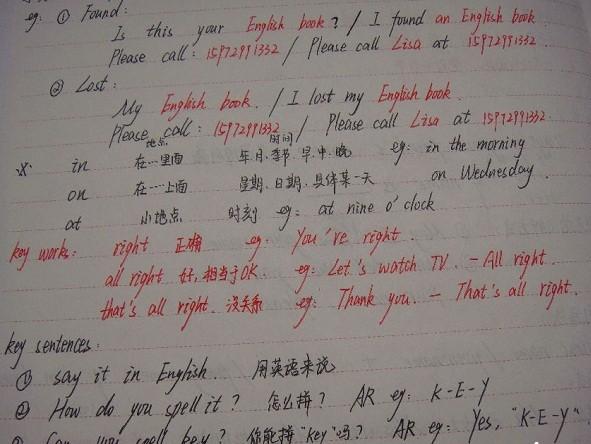 eg: ① Found:
Is this your English book? / I found an English book
Please call: 15972991332 / Please call Lisa at 15972991332.
② Lost:
My English book. / I lost my English book
Please call: 15972991332 / Please call Lisa at 15972991332.
地点 时间
※ in 在…里面 年.月.季节.早.中.晚 eg: in the morning
on 在…上面 星期.日期.具体某一天 on Wednesday.
at 小地点 时刻 eg: at nine o'clock
key works: right 正确 eg You're right.
all right 好,相当于OK. eg: Let's watch TV. - All right.
that's all right. 没关系 eg: Thank you. - That's all right.
key sentences:
① say it in English. 用英语来说
② How do you spell it? 怎么拼? AR eg: K-E-Y
③ Can you spell key? 你能拼"key"吗? AR eg: Yes, "K-E-Y"